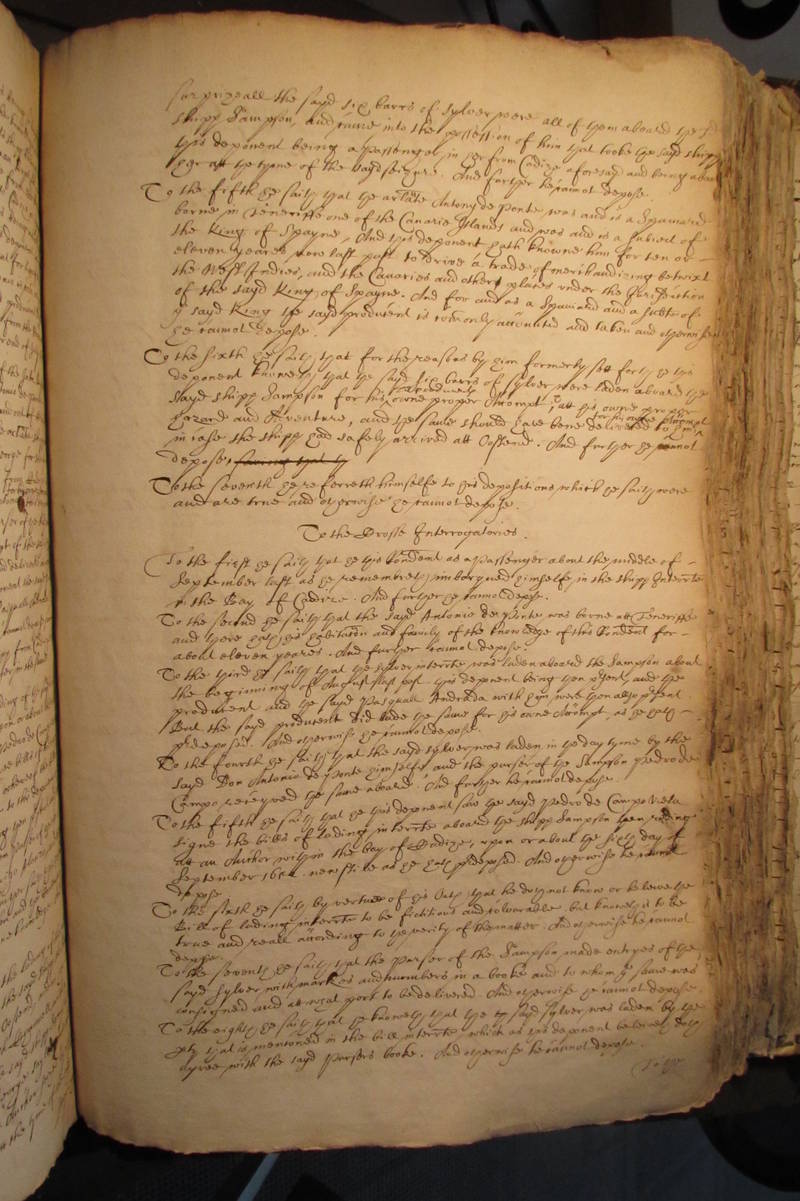 surprizeall the sayd six barrs of sylver were all of them aboard the sd
shipp Sampson, and came into the possession of him that tooke the sayd shipp
this deponent being a passenger in her from Cadize aforesayd and being aboard
her att the tyme of the sayd seizure. And further he cannot depose.
To the fifth he saith that the arlate Antony de Ponte was and is a Spaniard
borne in Teneriffe one of the Canarie Islands and was and is a subiect of
the King of Spayne, And this deponent hath knowne him for ten or
eleven yeares now last past to drive a trade of merchandizing betwixt
the West Indies, and the Canaries and other places under the Jurisdiction
of the sayd King of Spayne. And for and as a Spaniard and a subte of
ye sayd King the sayd producent is comonly accounted and taken and otherwise
he cannot depose.
To the sixth he saith that for the reasons by him formerly sett forth he this
deponent knoweth that the sayd six barrs of sylver were laden aboard the
sayd shipp Sampson for his the producents owne proper Accompt, att his owne proper
hazard and Adventure, and the same should have bene delivered to him for his owne Accompt
in case the shipp had safely arrived att Ostend. And further he cannot
depose, saving that hee
To the seventh he referreth himselfe to his depositions which he saith were
and are true and otherwise he cannot depose.
To the Crosse Interrogatories.
To the first he saith that he this Rondent as a passenger about the middle of
September last as he remembreth imbarqued himselfe in the shipp Interrte
in the Bay of Cadize. And further he cannot depose.
To the second he saith that the sayd Antonio de Ponte was borne att Teneriffe
and there hath his habitacon and family of the knowledge of this Rondent for
about eleven yeares. And further cannot depose.
To the third he saith that the sylver interrte was laden aboard the Sampson about
the beginning of August last past this deponent being then psent, and the
producent and the sayd Pasquall Andrada with him were then also psent.
But the sayd producent did lade the same for his owne Accompt, as he hath
predeposed. And otherwise he cannot depose.
To the fourth he saith that the sayd sylver was laden in the day tyme by the
sayd Don Antonio de Ponte himselfe, and the purser of the Sampson Pedro de
Campo received the same aboard. And further he cannot depose.
To the fifth he saith that he this deponent saw the sayd Pedro de Campo Vela
signe the bills of lading interrte aboard the shipp Sampson then riding
att an Anchor within the bay of Cadize, upon or about the sixth day of
September 1652. new stile as he hath predeposed. And otherwise he cannot
depose
To the sixth he saith by vertue of his Oath that he doth not know or beleeve the
Bill of lading interrte to be fictitious and colourable but knoweth it to be
true and reall according to the verity of the matter. And otherwise he cannot
depose.
To the seventh he saith that the Purser of the Sampson made entryes of the
sayd sylver with markes and numbers in a booke and to whom ye same was
consigned and at what port to be delivered. And otherwise he cannot depose.
To the eighth he saith that he knoweth that the sayd sylver was laden by the
that is mentioned in the bill interrte which as this deponent beleeveth doth
agree with the sayd Pursers booke. And otherwise he cannot depose.
To the